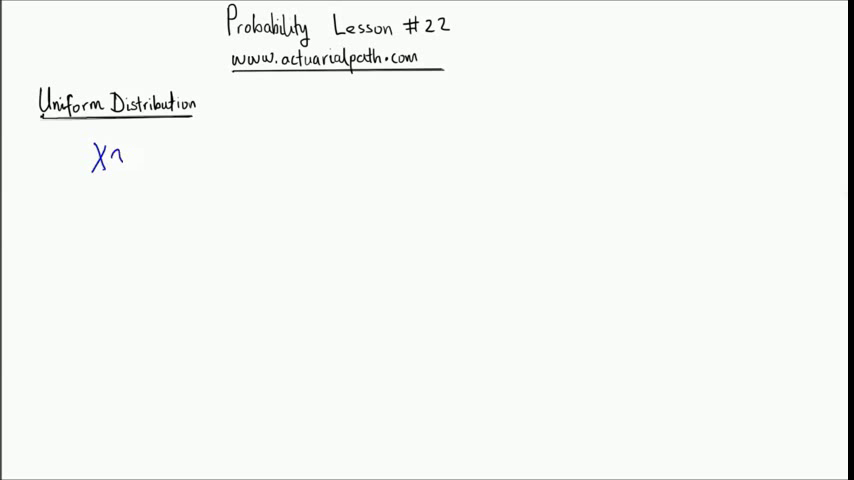 Probability Lesson #22
www.actuarialpath.com
Uniform Distribution
X~